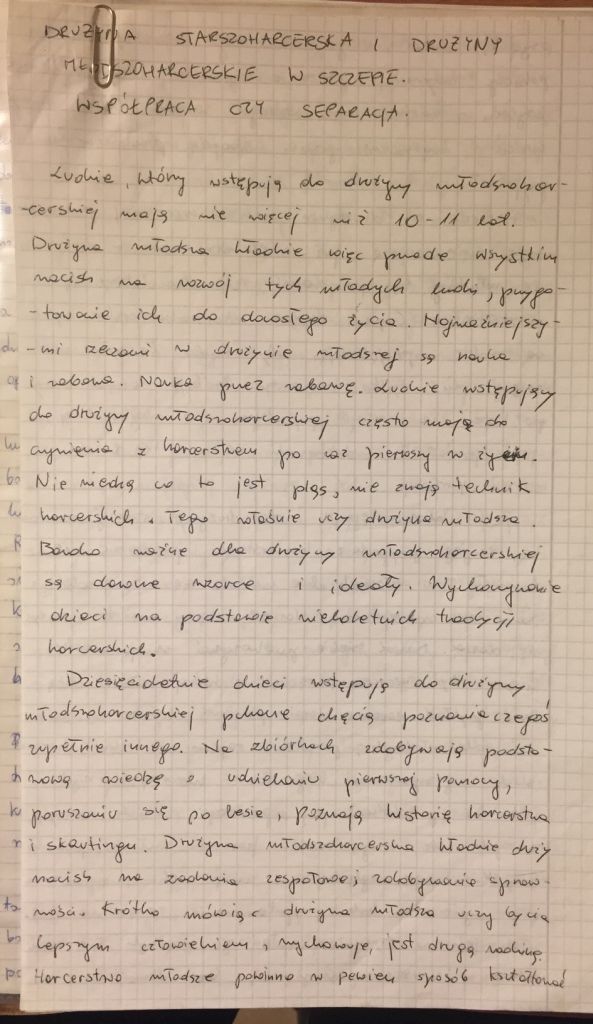 DRUŻYNA STARSZOHARCERSKA I DRUŻYNY
MŁODSZOHARCERSKIE W SZCZEPIE.
WSPÓŁPRACA CZY SEPARACJA.
Ludzie, którzy wstępują do drużyny młodszohar-
-cerskiej mają nie więcej niż 10-11 lat.
Drużyna młodsza kładzie więc przede wszystkim
nacisk na rozwój tych młodych ludzi, przygo-
-towanie ich do dorosłego życia. Najważniejszy-
-mi rzeczami w drużynie młodszej są nauka
i zabawa. Nauka przez zabawę. Ludzie wstępujący
do drużyny młodszoharcerskiej często mają do
czynienia z harcerstwem po raz pierwszy w życiu.
Nie wiedzą co to jest pląs, nie znają technik
harcerskich. Tego właśnie uczy drużyna młodsza.
Bardzo ważne dla drużyny młodszoharcerskiej
są dawne wzorce i ideały. Wychowywanie
dzieci na podstawie wieloletnich tradycji
harcerskich.
Dziesięcioletnie dzieci wstępują do drużyny
młodszoharcerskiej pchane chęcią poznania czegoś
zupełnie innego. Na zbiórkach zdobywają podsta-
wową wiedzę o udzielaniu pierwszej pomocy,
poruszaniu się po lesie, poznają historię harcerstwa
i skautingu. Drużyna młodszoharcerska kładzie duży
nacisk na zadania zespołowe i zdobywanie spraw-
ności. Krótko mówiąc drużyna młodsza uczy bycia
lepszym człowiekiem, wychowuje, jest drugą rodziną.
Harcerstwo młodsze powinno w pewien sposób kształtować